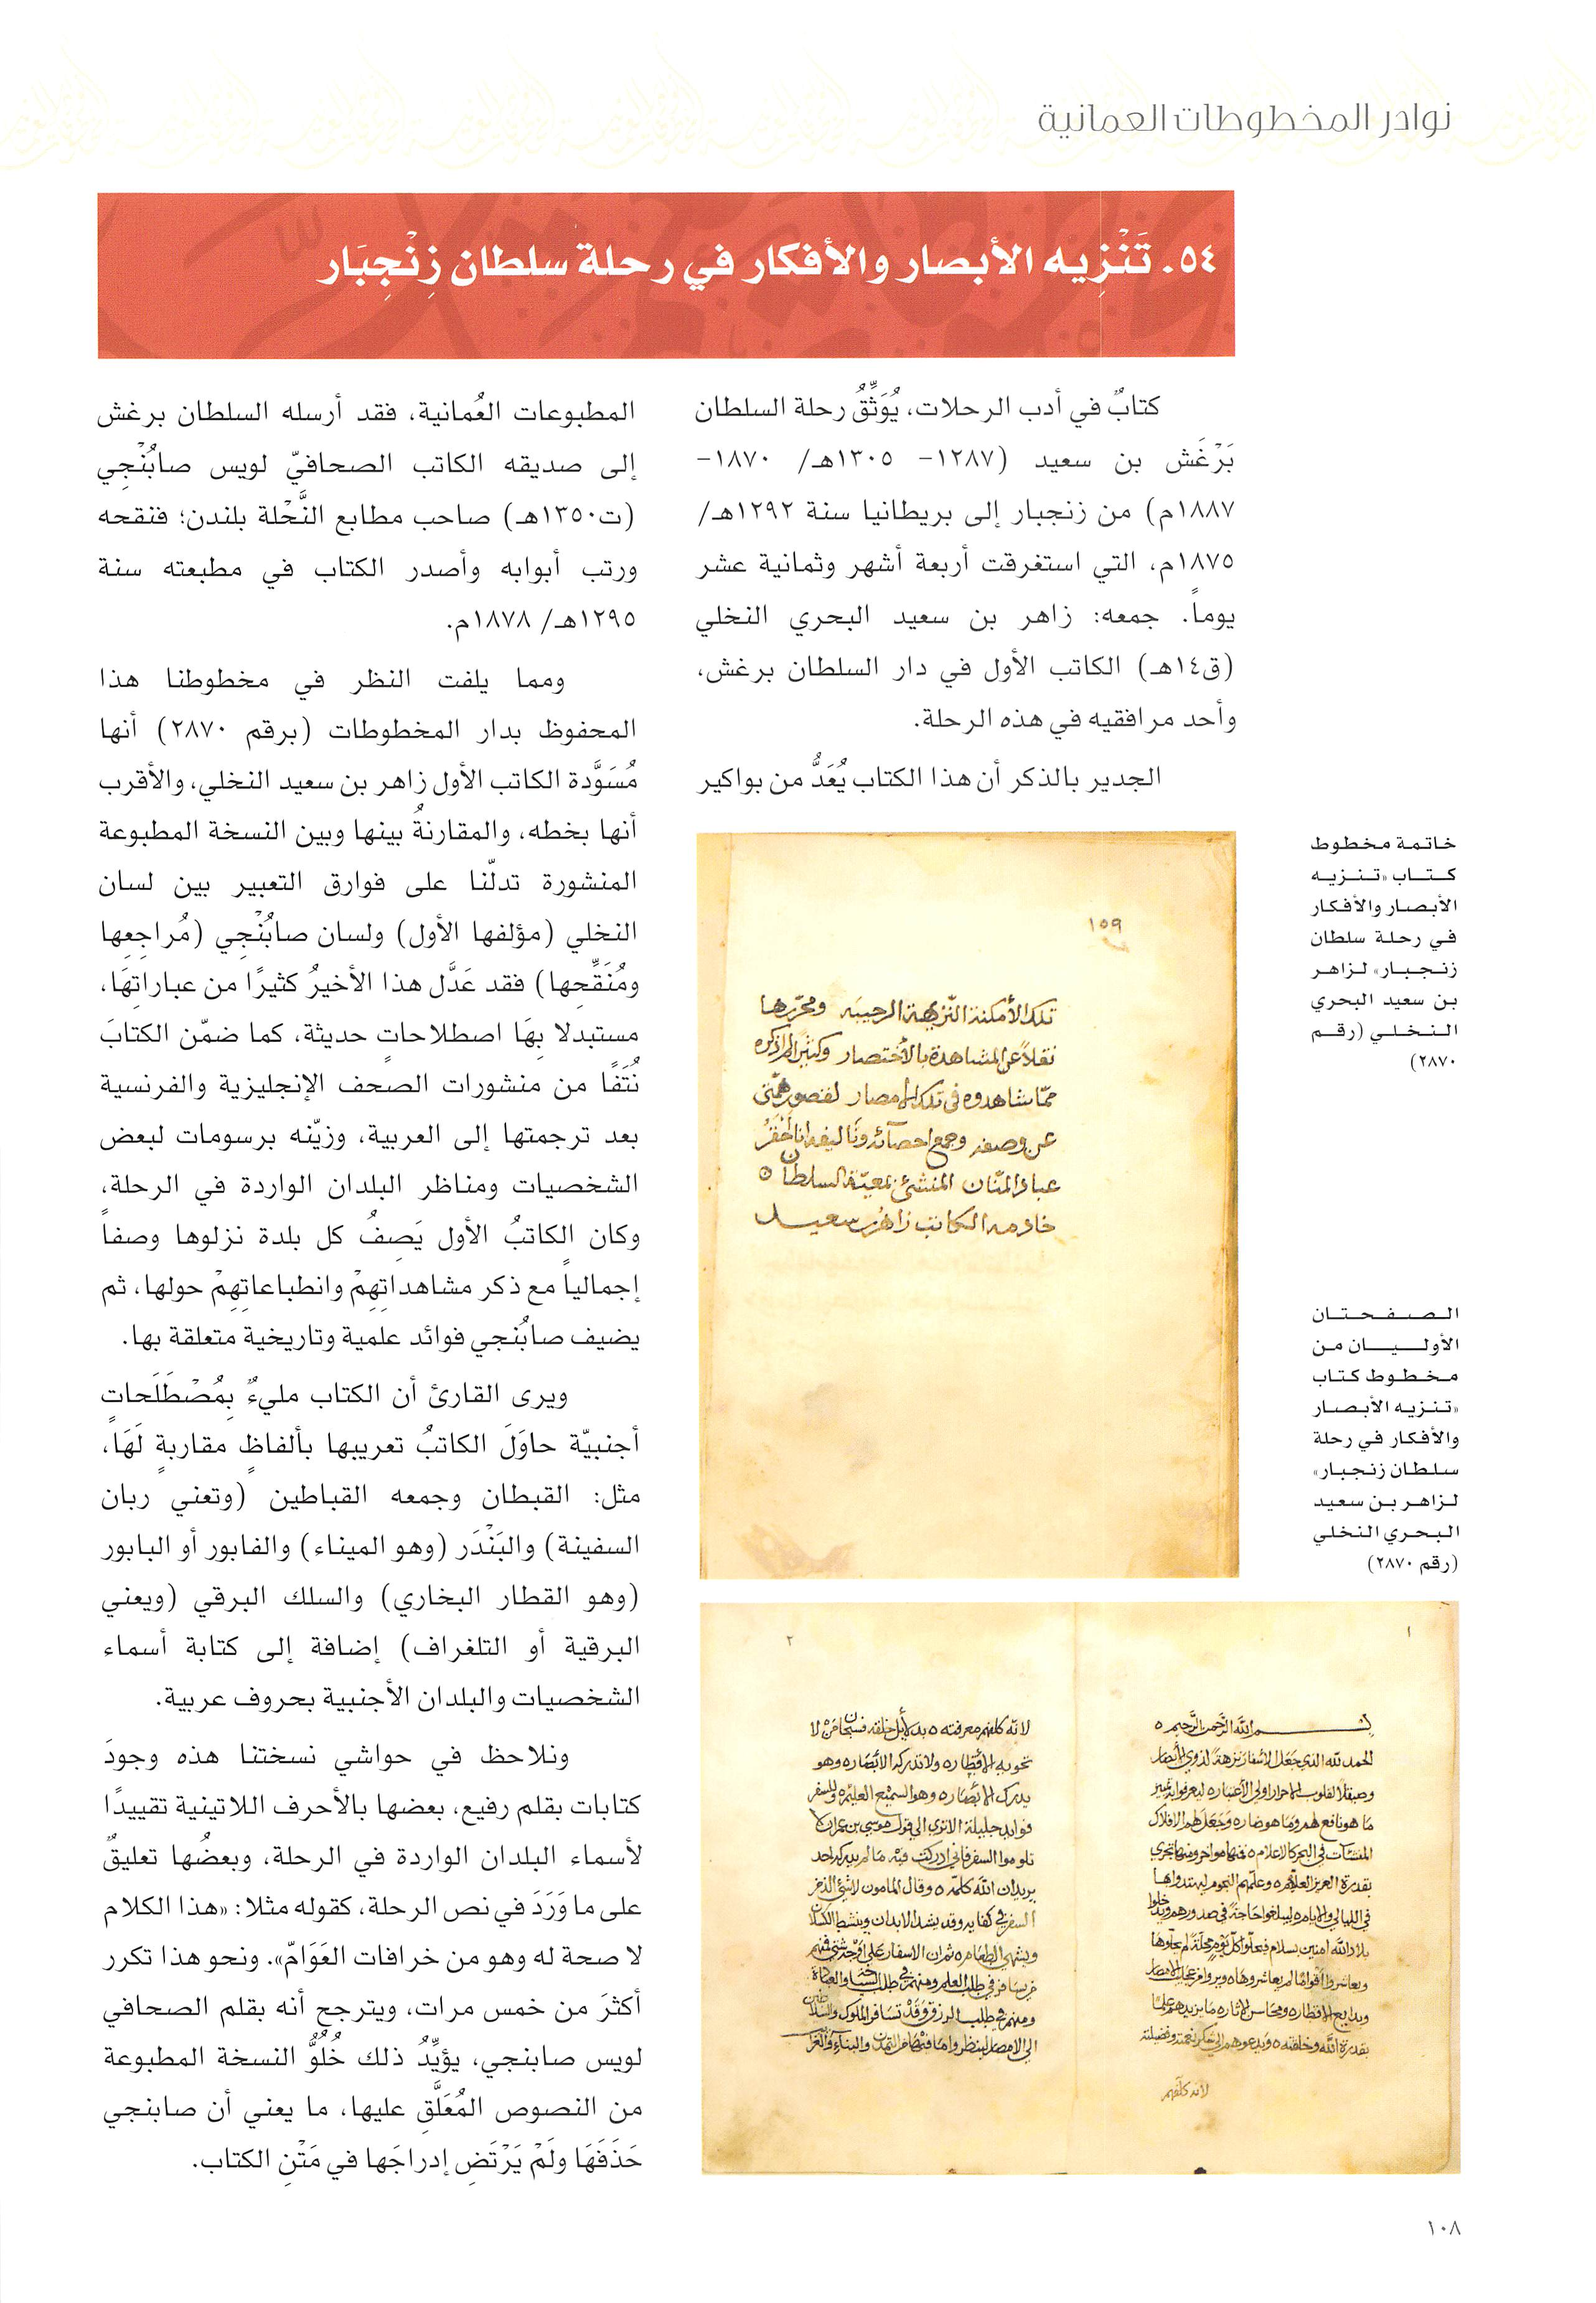 نوادر المخطوطات العمانية
٥٤. تَنْزِيه الأبصار والأفكار في رحلة سلطان زِنْجِبَار
كتابٌ في أدب الرحلات، يُوَثِّقُ رحلة السلطان
بَرْغَش بن سعيد (١٢٨٧- ١٣٠٥هـ/ ١٨٧٠-
١٨٨٧م) من زنجبار إلى بريطانيا سنة ١٢٩٢هـ/
١٨٧٥م، التي استغرقت أربعة أشهر وثمانية عشر
يوماً. جمعه: زاهر بن سعيد البحري النخلي
(ق١٤هـ) الكاتب الأول في دار السلطان برغش،
وأحد مرافقيه في هذه الرحلة.
الجدير بالذكر أن هذا الكتاب يُعَدُّ من بواكير
المطبوعات العُمانية، فقد أرسله السلطان برغش
إلى صديقه الكاتب الصحافيّ لويس صابُنْجِي
(ت١٣٥٠هـ) صاحب مطابع النَّحْلة بلندن؛ فنقحه
ورتب أبوابه وأصدر الكتاب في مطبعته سنة
١٢٩٥هـ/ ١٨٧٨م.
ومما يلفت النظر في مخطوطنا هذا
المحفوظ بدار المخطوطات (برقم ٢٨٧٠) أنها
مُسَوَّدة الكاتب الأول زاهر بن سعيد النخلي، والأقرب
أنها بخطه، والمقارنةُ بينها وبين النسخة المطبوعة
المنشورة تدلّنا على فوارق التعبير بين لسان
النخلي (مؤلفها الأول) ولسان صابُنْجِي (مُراجِعِها
ومُنَقِّحِها) فقد عَدَّل هذا الأخيرُ كثيرًا من عباراتِهَا،
مستبدلا بِهَا اصطلاحاتٍ حديثة، كما ضمّن الكتابَ
نُتَفًا من منشورات الصحف الإنجليزية والفرنسية
بعد ترجمتها إلى العربية، وزيّنه برسومات لبعض
الشخصيات ومناظر البلدان الواردة في الرحلة،
وكان الكاتبُ الأول يَصِفُ كل بلدة نزلوها وصفاً
إجمالياً مع ذكر مشاهداتِهِمْ وانطباعاتِهِمْ حولها، ثم
يضيف صابُنجي فوائد علمية وتاريخية متعلقة بها.
ويرى القارئ أن الكتاب مليءٌ بِمُصْطَلَحاتٍ
أجنبيّة حاوَلَ الكاتبُ تعريبها بألفاظٍ مقاربةٍ لَهَا،
مثل: القبطان وجمعه القباطين (وتعني ربان
السفينة) والبَنْدَر (وهو الميناء) والفابور أو البابور
(وهو القطار البخاري) والسلك البرقي (ويعني
البرقية أو التلغراف) إضافة إلى كتابة أسماء
الشخصيات والبلدان الأجنبية بحروف عربية.
ونلاحظ في حواشي نسختنا هذه وجودَ
كتابات بقلم رفيع، بعضها بالأحرف اللاتينية تقييدًا
لأسماء البلدان الواردة في الرحلة، وبعضُها تعليقٌ
على ما وَرَدَ في نص الرحلة، كقوله مثلا: «هذا الكلام
لا صحة له وهو من خرافات العَوَامّ». ونحو هذا تكرر
أكثرَ من خمس مرات، ويترجح أنه بقلم الصحافي
لويس صابنجي، يؤيِّدُ ذلك خُلُوُّ النسخة المطبوعة
من النصوص المُعَلَّقِ عليها، ما يعني أن صابنجي
حَذَفَهَا ولَمْ يَرْتَضِ إدراجَها في مَتْنِ الكتاب.
خاتمة مخطوط
كتاب «تنزيه
الأبصار والأفكار
في رحلة سلطان
زنجبار» لزاهر
بن سعيد البحري
النخلي (رقم
٢٨٧٠)
١٥٩
تلك الأمكنة النّزيهة الرحيبَه ومحرّرها
نقلاً عن المشاهدة بالأختصار وكثير لم اذكره
ممّا شاهدوه في تلك الامصار لقصور همّتي
عن وصفه وجمع احصائه وتاليفه انا أحْقَرُ
عباد المنّان المنشئ بمعيّة السلطان
خادمه الكاتب زاهر بن سعيد
الصفحتان
الأوليان من
مخطوط كتاب
«تنزيه الأبصار
والأفكار في رحلة
سلطان زنجبار»
لزاهر بن سعيد
البحري النخلي
(رقم ٢٨٧٠)
١
بسم الله الرَّحمن الرَّحيم
الحمد لله الذي جَعَل الاسفار نزهةً لذوي الأبصار
٢
١٠٨